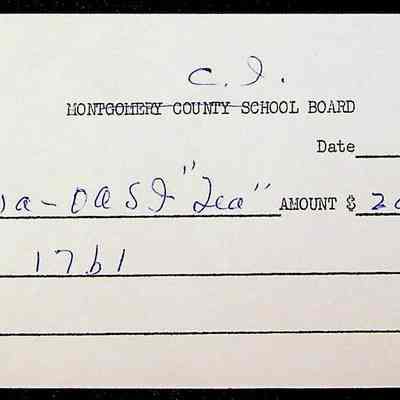 C.I.
MONTGOMERY COUNTY SCHOOL BOARD
Date
a-OASI "Tea" AMOUNT $ 20
1761